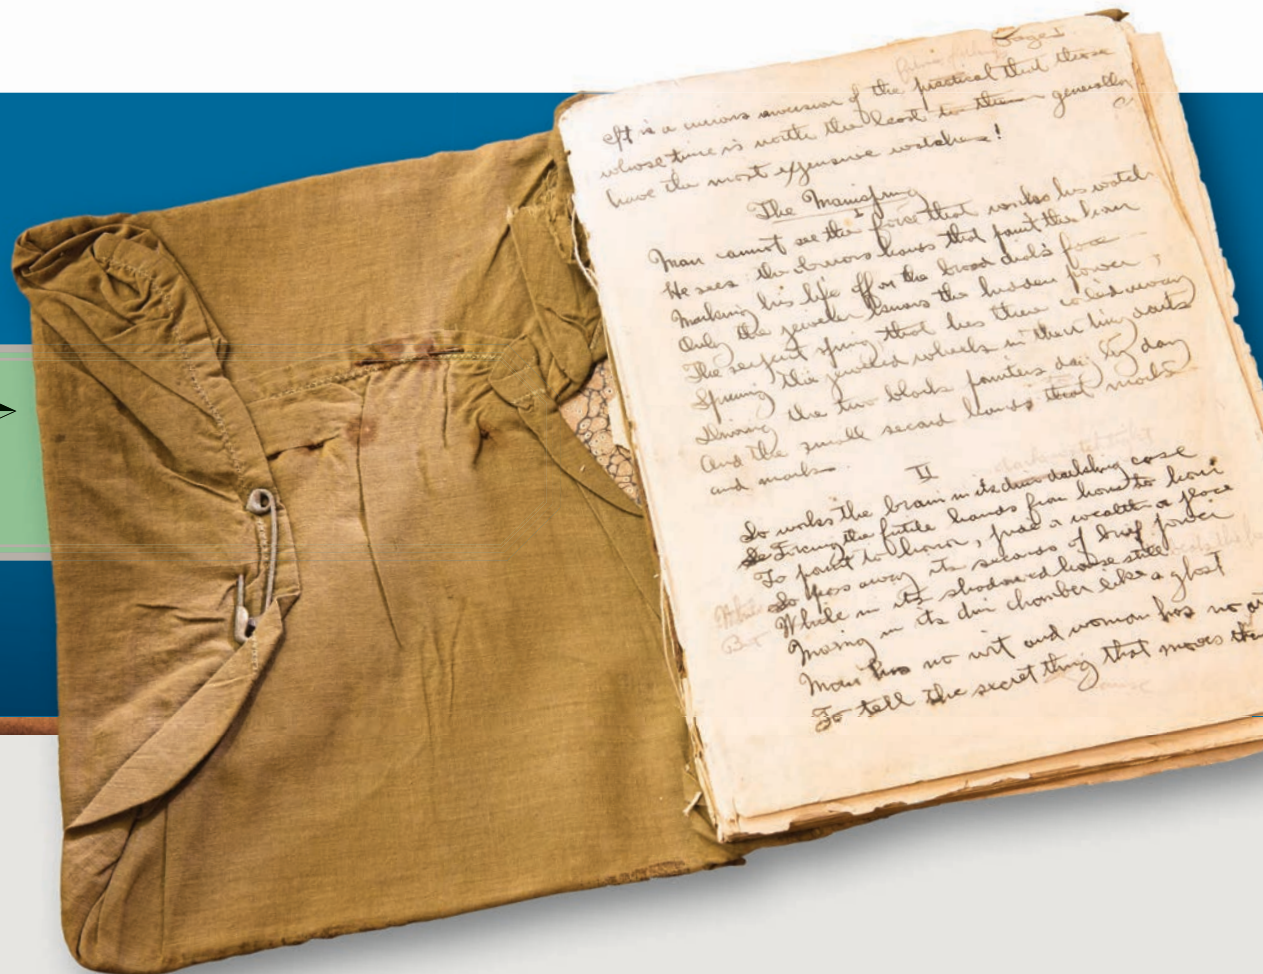 Page 1
It is a curious inversion of the practical that those
whose time is worth the least to them generally
have the most expensive watches!
The Mainspring
I
Man cannot see the force that works his watch
He sees the hands that point the hour
Marking his life off on the broad dial's face
Only the jeweler knows the hidden power,
The serpent spring that lies there coiled away
Spinning the jeweled wheels in their tiny
Driving the two black pointers day by day
And the small second hands that mocks
and marks.
II
So works the brain in its dim case
Forcing the futile hands from hour to hour
To point to honor, pride or wealth or place
So pass away its seconds of brief power
While in its shadowed house still
But
Moving in its dim chamber like a ghost
Man has no wit and woman has no
To tell the secret thing that moves